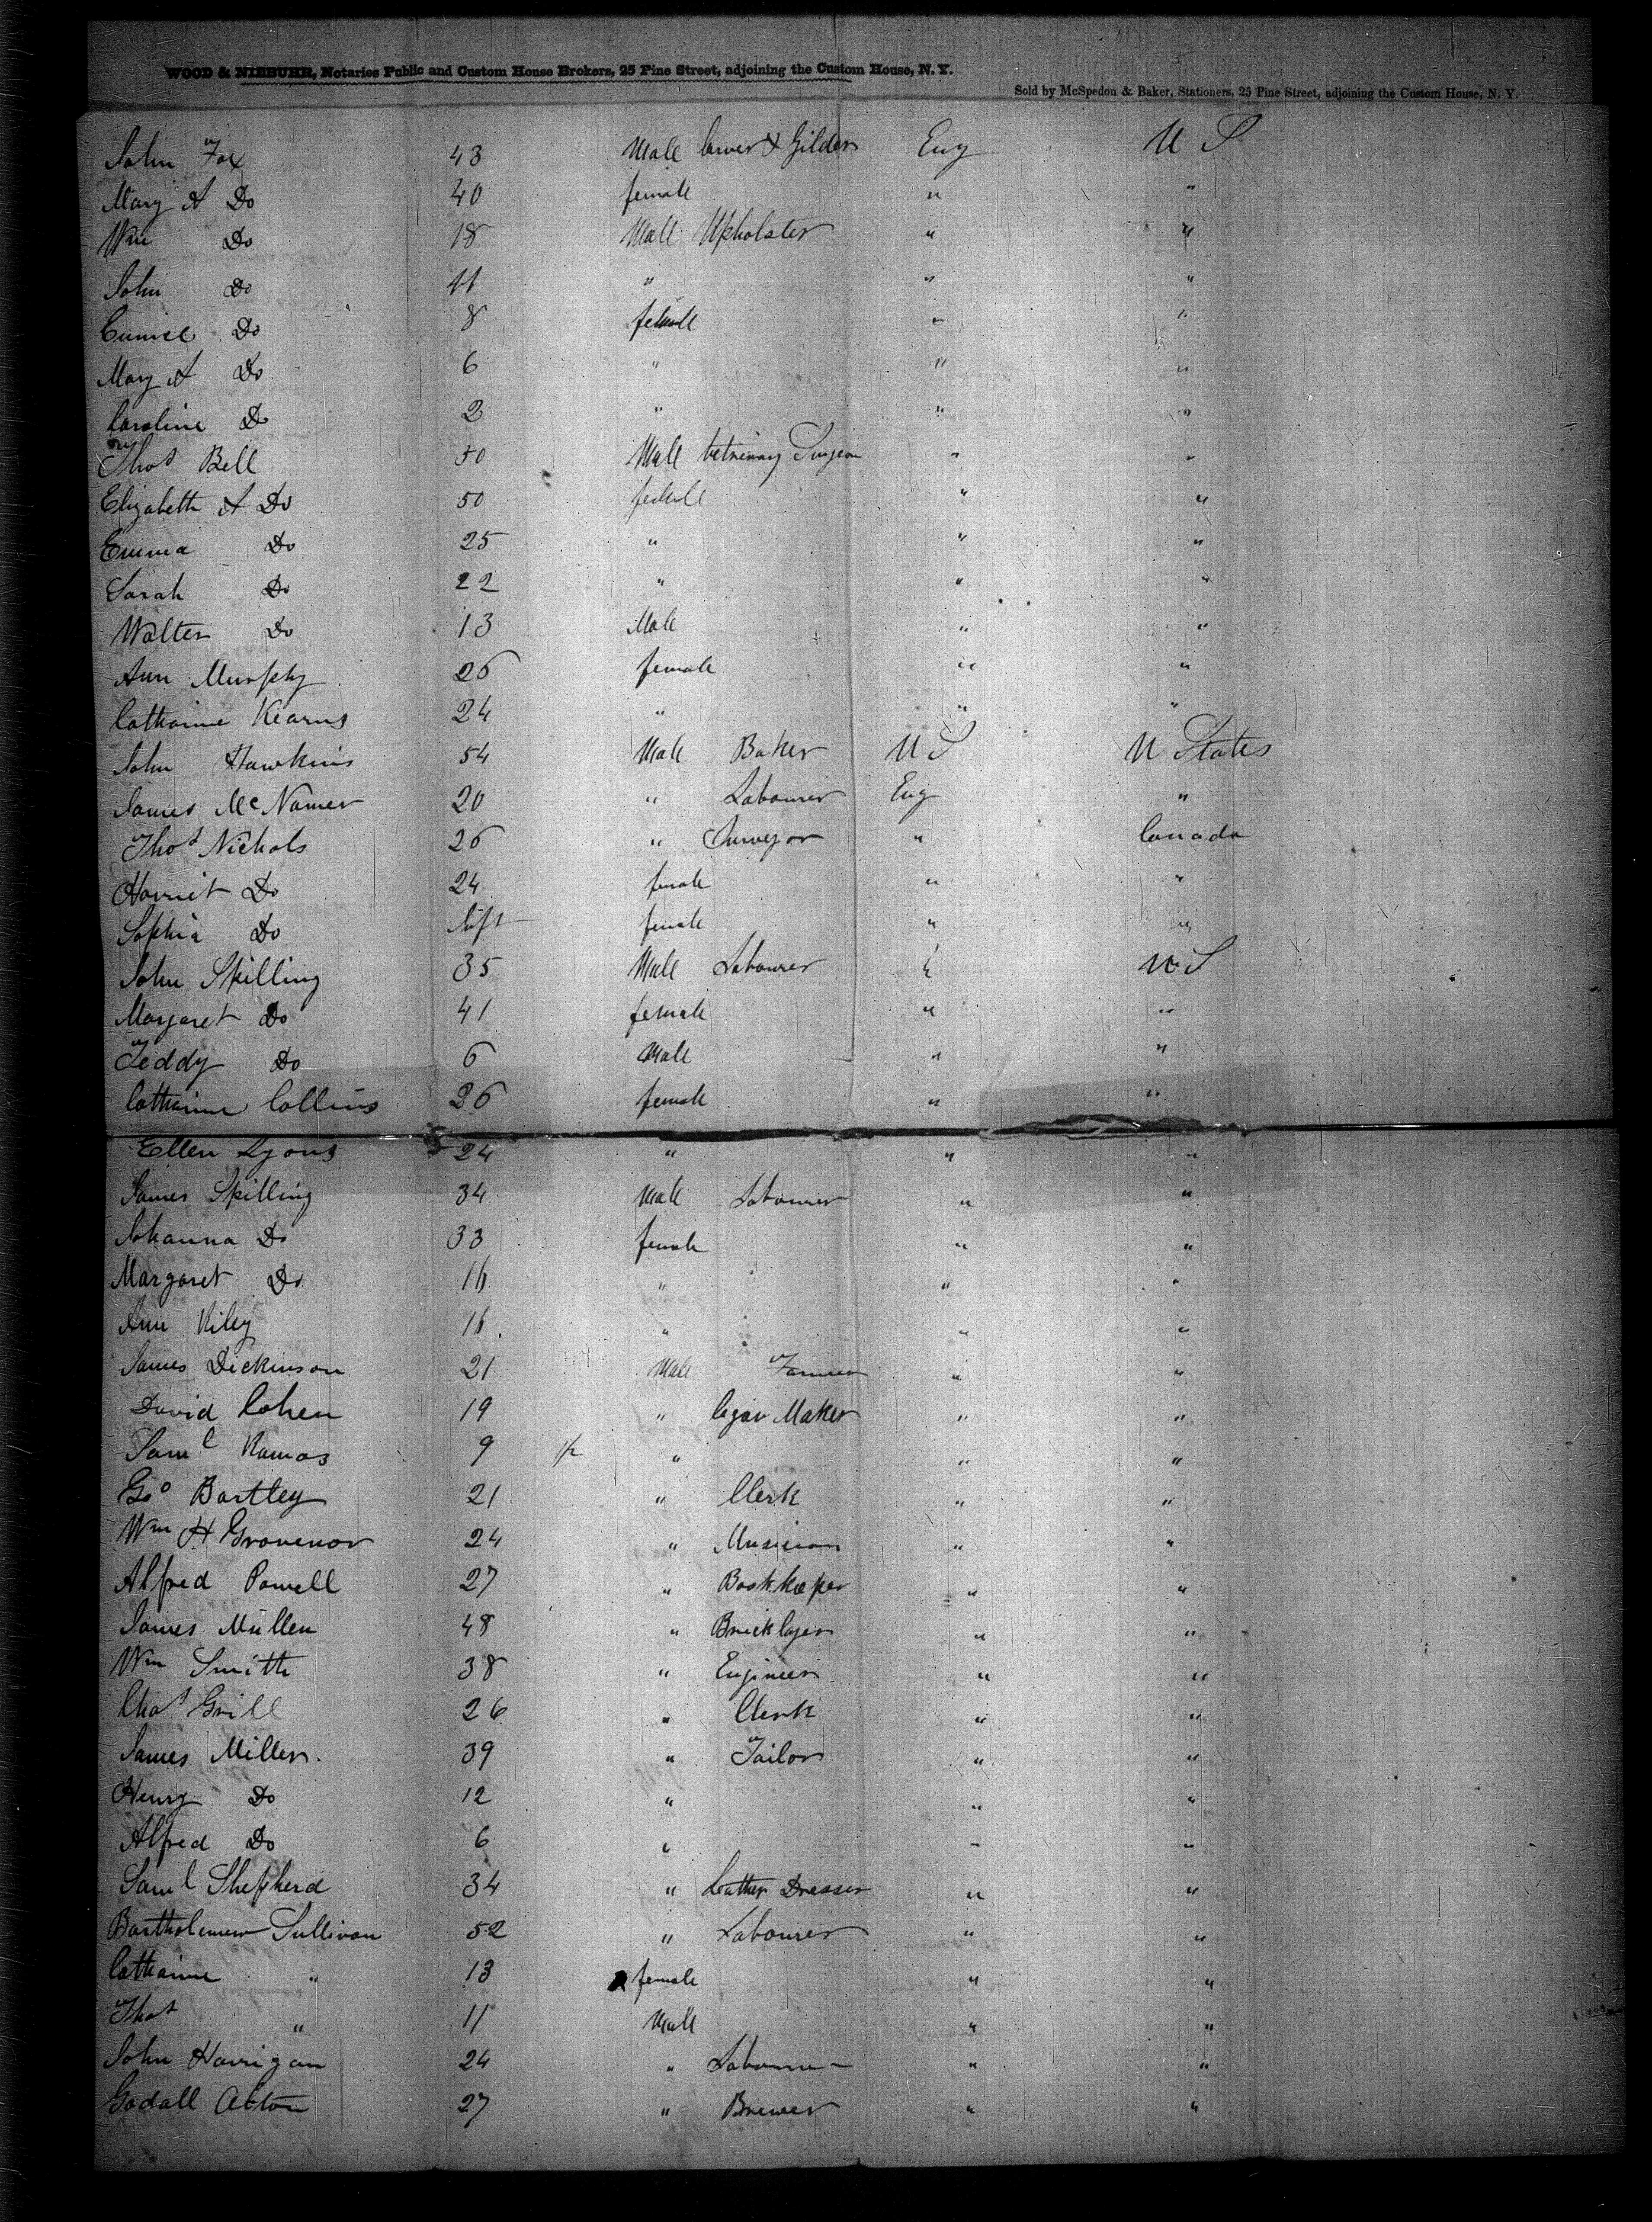 WOOD & NIEBUHR, Notaries Public and Custom House Brokers, 25 Pine Street, adjoining the Custom House, N. Y.
Sold by McSpedon & Baker, Stationers, 25 Pine Street, adjoining the Custom House, N. Y.
John Fox 43 Male Carver & Gilder Eng U S
Mary A Do 40 female " "
Wm Do 18 Male Upholster " "
John Do 11 " " "
Eunice Do 8 female " "
Mary A Do 6 " " "
Caroline Do 2 " " "
Thos Bell 50 Male Vetrinary Surgeon " "
Elizabeth A Do 50 female " "
Emma Do 25 " " "
Sarah Do 22 " " "
Walter Do 13 Male " "
Ann Murphy 26 female " "
Catharine Kearns 24 " " "
John Hawkins 54 Male Baker U S U States
James McNamer 20 " Labourer Eng "
Thos Nichols 26 " Surveyor " Canada
Harriet Do 24 female " "
Sophia Do Inft female " "
John Spilling 35 Male Labourer " U S
Margaret Do 41 female " "
Teddy Do 6 Male " "
Catharine Collins 26 female " "
Ellen Lyons 24 " " "
James Spilling 34 Male Labourer " "
Johanna Do 33 female " "
Margaret Do 16 " " "
Ann Riley 16 " " "
James Dickinson 21 Male Farmer " "
David Cohen 19 " Cegar Maker " "
Saml Ramos 9 " " "
Geo Bartley 21 " Clerk " "
Wm H Grovenor 24 " Musician " "
Alfred Powell 27 " Bookkeper " "
James Mullen 48 " Bricklayer " "
Wm Smith 38 " Engineer " "
Chas Grill 26 " Clerk " "
James Miller 39 " Tailor " "
Henry Do 12 " " "
Alfred Do 6 " " "
Saml Shepherd 34 " Leather Dresser " "
Bartholemew Sullivan 52 " Labourer " "
Catharine " 13 female " "
Thos " 11 Male " "
John Harrigan 24 " Labourer " "
Godall Abton 27 " Brewer " "